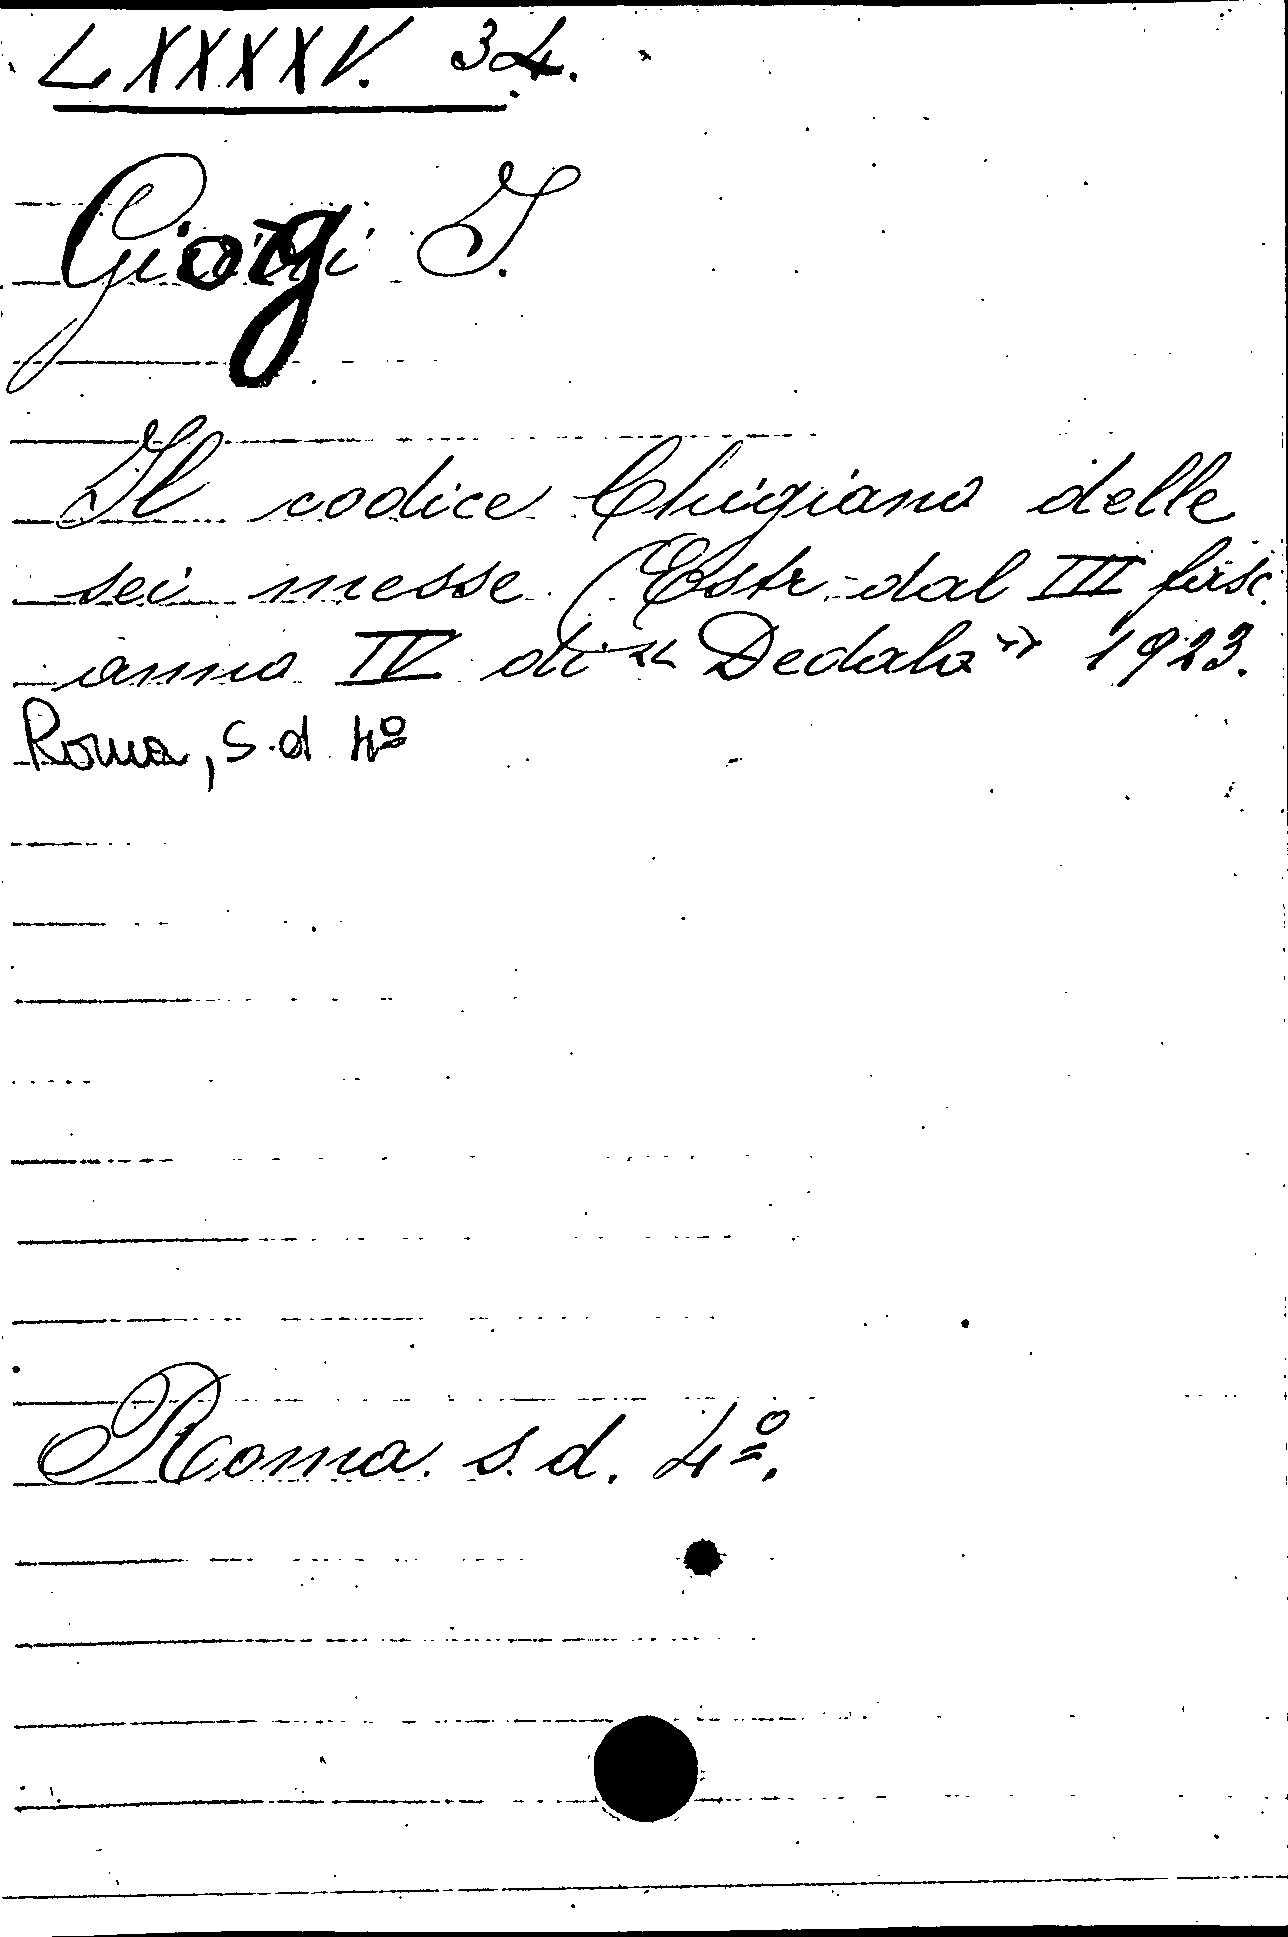 LXXXXV. 34.
Giorgi I.
Il codice Chigiano delle
sei messe (Estr. dal III fasc.
anno IV di « Dedalo » 1923.
Roma, s.d 4º
Roma. s. d. 4º.